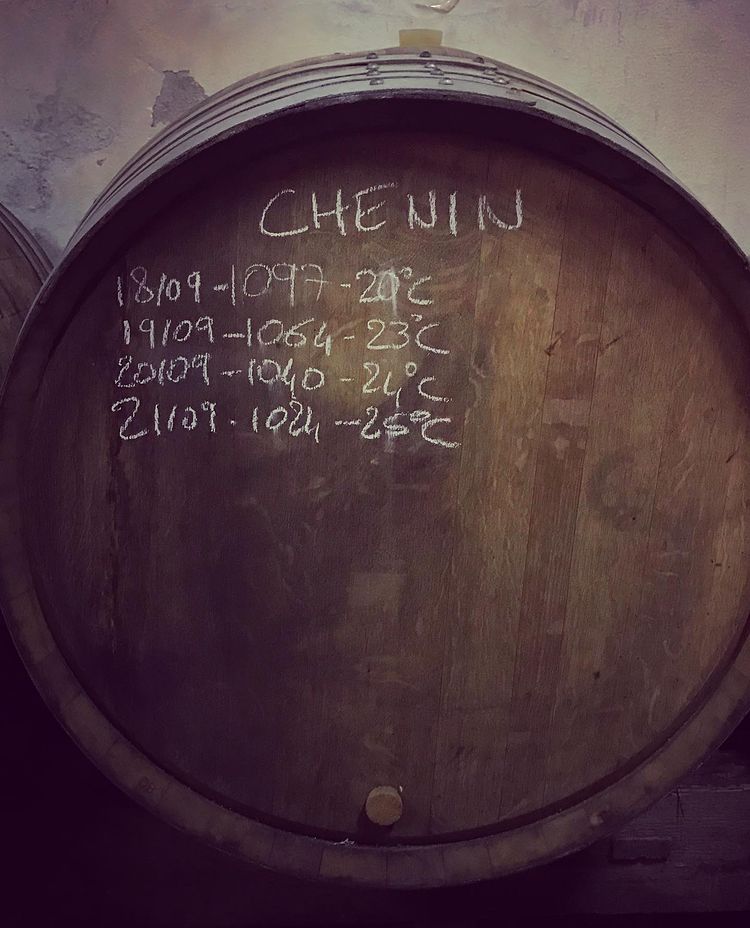 CHENIN
18/09-1097-20°C
19/09-1064-23°C
20/09-1040-24°C
21/09-1024-26°C